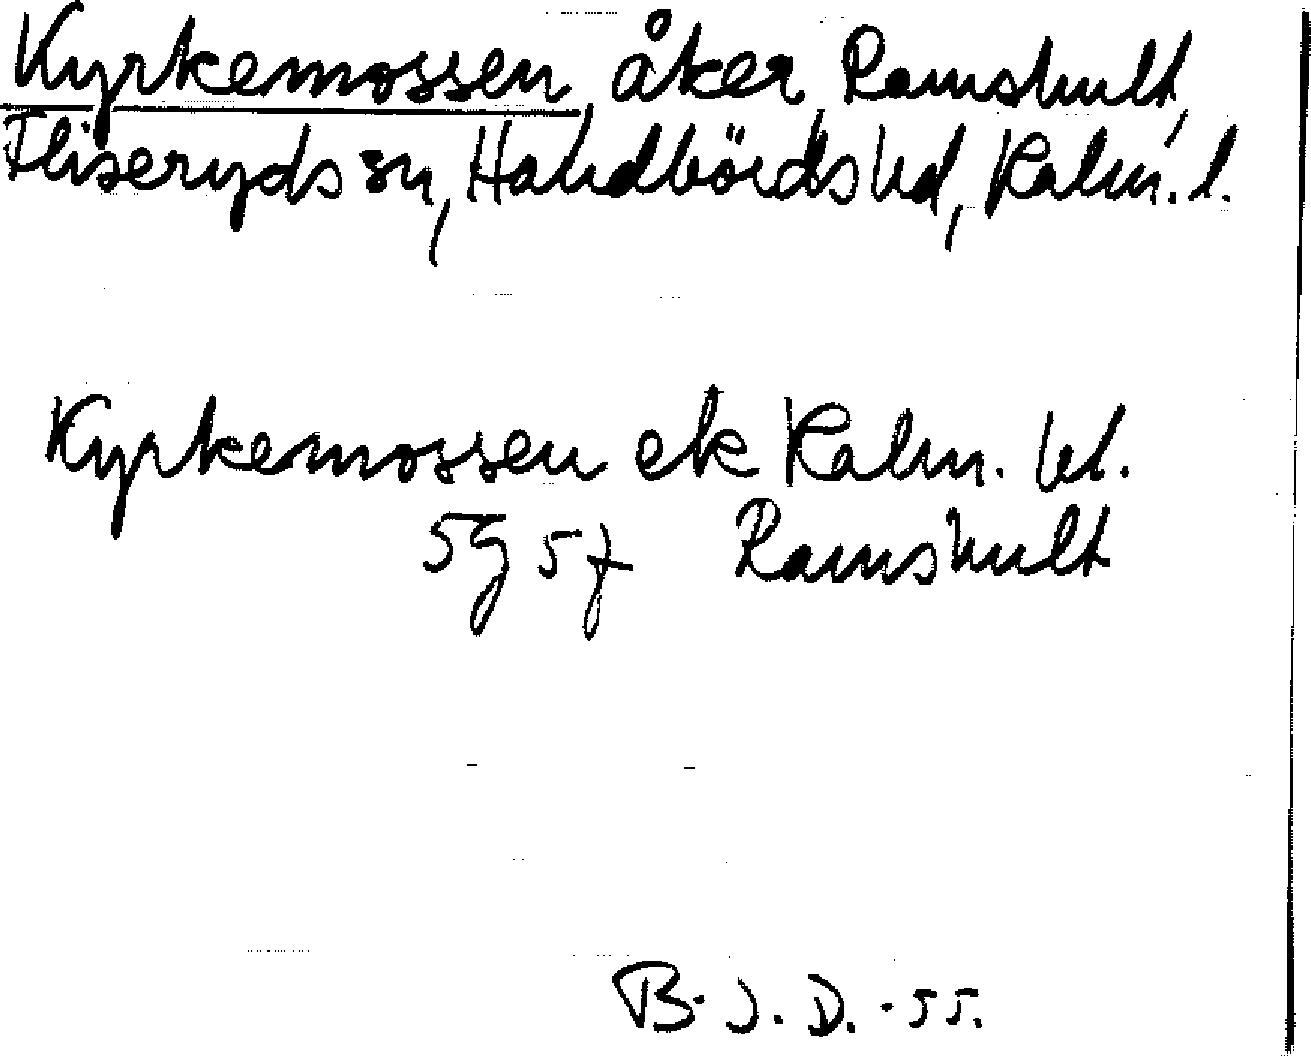 Kyrkemossen, åker, Ramshult,
Fliseryds sn, Handbörds hd, Kalm. l.
Kyrkemossen ek Kalm. bl.
5g 5f Ramshult
B. J. D. -55.